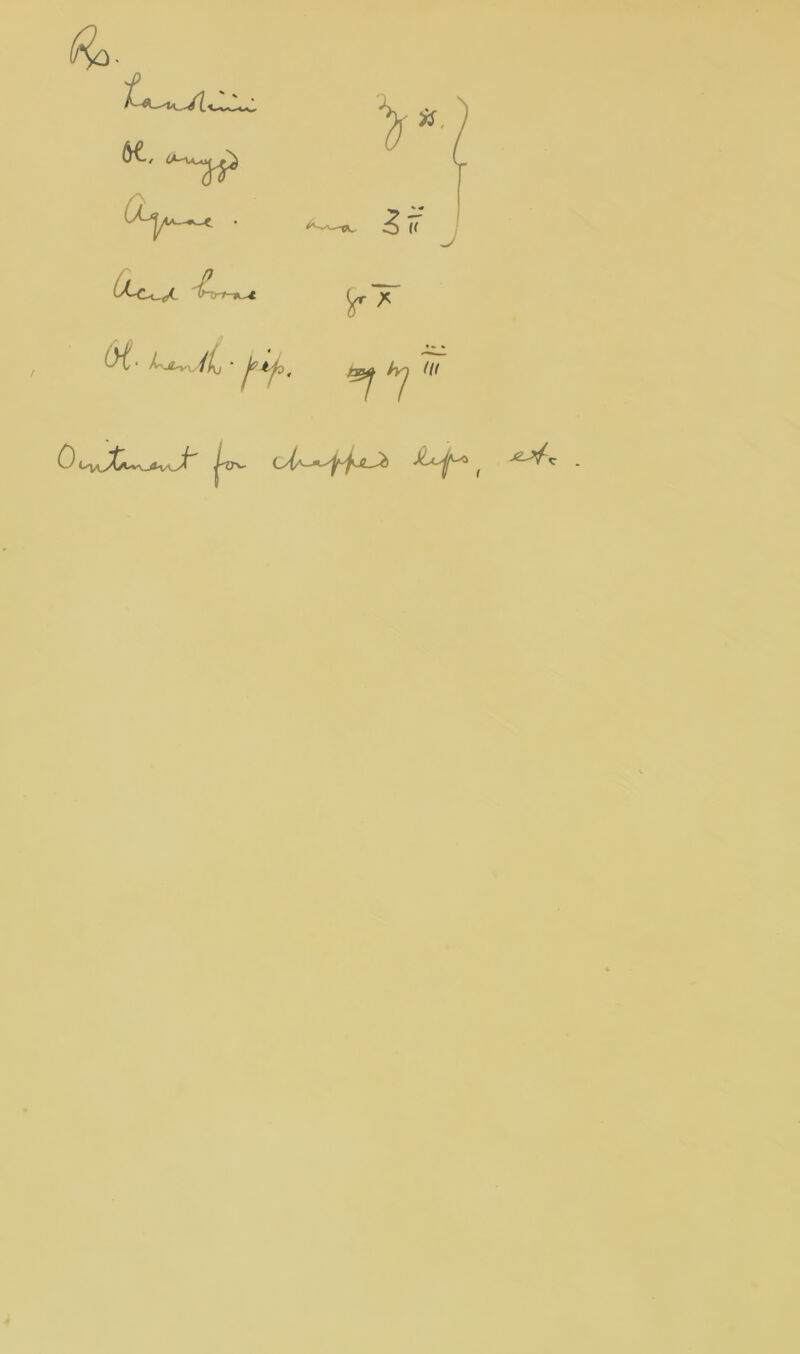 Rx.
Lanolini ℥ss.
Ol. amygd
Aquae . ana ʒ ii
Acid Borac gr X
Ol. menth. pip. ♏ iii
Ointment for chapped lips, etc.